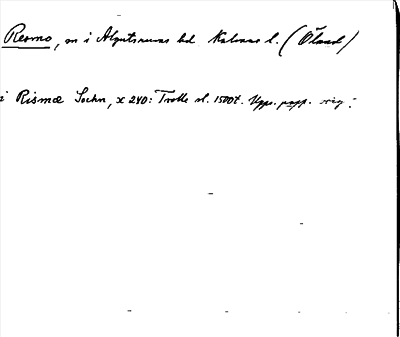 Resmo, sn i Algutsrums hd Kalmar l. (Öland)
i Rismæ Sochn, x 240: Trolle sl. 1500t. Upps. papp. reg.